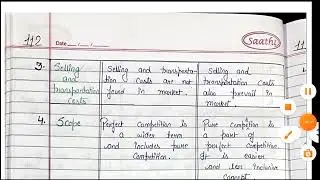 112
Date __/__/__
Saathi
11
3.
Selling
and
transportation
costs
Selling and transporta-
tion costs are not
found in market.
Selling and
transportation costs
also prevail in
market.
4.
Scope
Perfect competition is
a wider term
and includes pure
competition.
Pure competition is
a part of
perfect competition.
It is easier
and less inclusive
concept